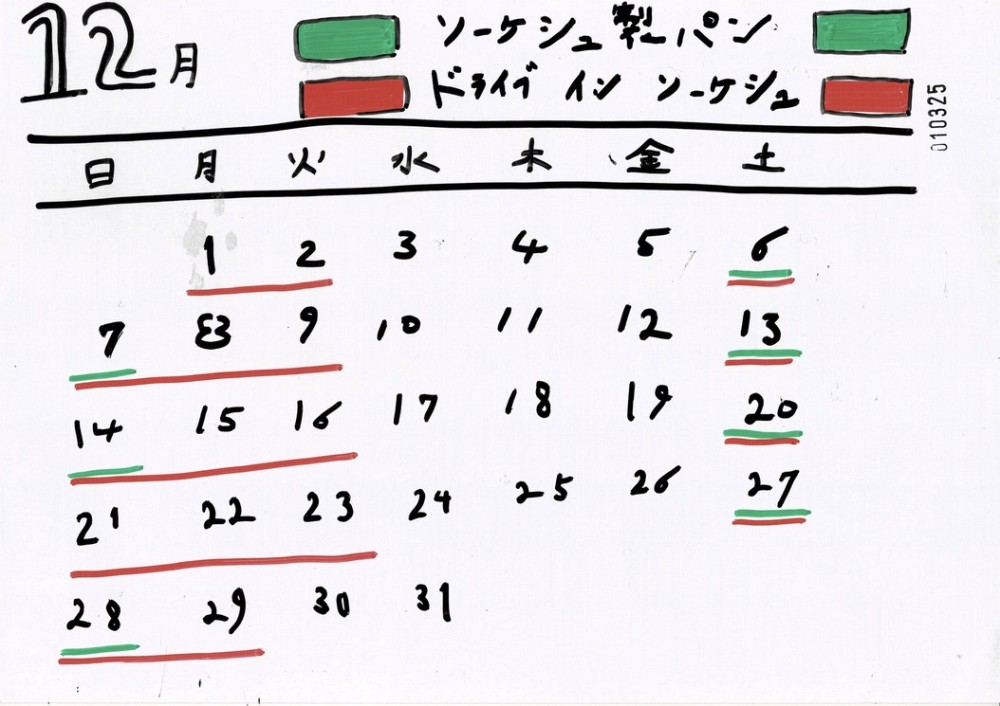 12月
ソーケシュ製パン
ドライブ イン ソーケシュ
010325
日 月 火 水 木 金 土
1 2 3 4 5 6
7 8 9 10 11 12 13
14 15 16 17 18 19 20
21 22 23 24 25 26 27
28 29 30 31